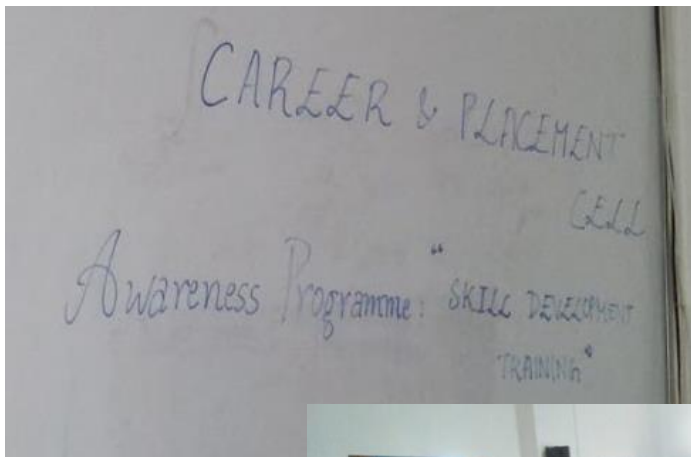 CAREER & PLACEMENT
CELL
Awareness Programme: "SKILL DEVELOPMENT
TRAINING"